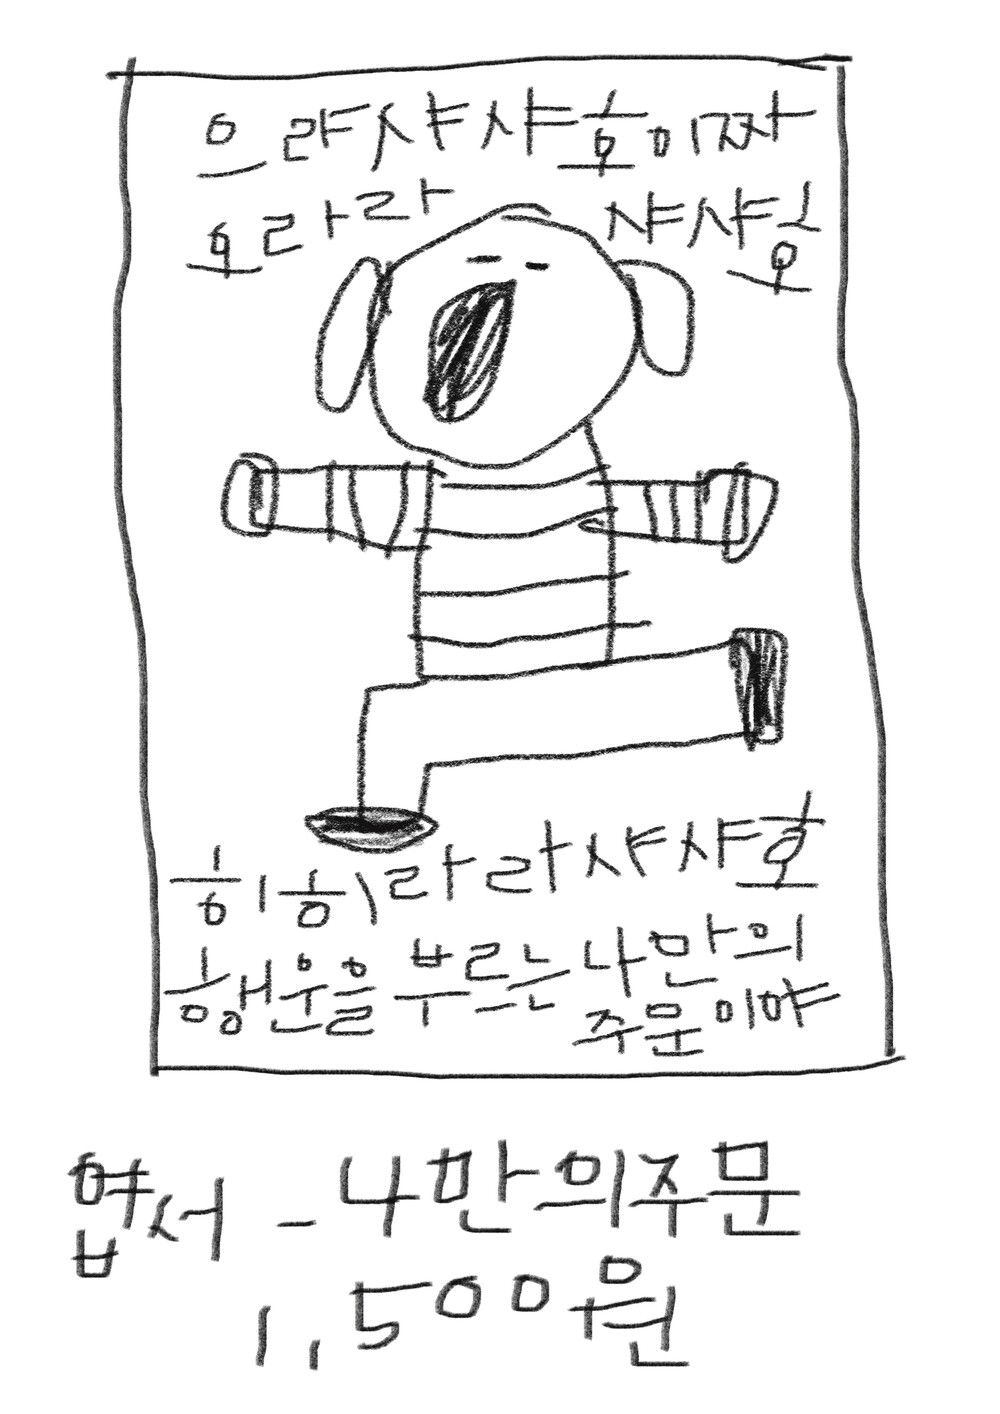 으랴샤샤호이짜
호라라 샤샤호
흐이흐이라라샤샤호
행운을 부르는 나만의
주문이야
엽서 - 나만의주문
1,500원